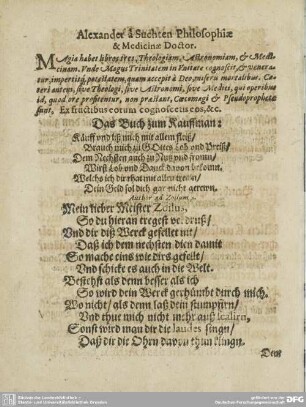 Alexander à Suchten Philosophiæ
& Medicinæ Doctor.
MAgia habet libros tres, Theologiam, Astronomiam, & Medi-
cinam. Vnde Magus Trinitatem in Vnitate cognoscit, & venera-
tur, impertitq; potestatem, quam accepit à Deo, miseris mortalibus. Cæ-
teri autem, sive Theologi, sive Astronomi, sive Medici, qui operibus
id, quod ore profitentur, non præstant, Cacomagi & Pseudoprophetæ
sunt. Ex fructibus eorum cognoscetis eos, &c.
Das Buch zum Kauffman:
Käuff und liß mich mit allem fleiß/
Brauch mich zu Gottes Lob und Preiß/
Dem Nechsten auch zu Nutz und fromn/
Wirst Lob und Danck davon bekomn.
Welchs ich dir rhat mit allen trewn/
Dein Geld sol dich gar nicht gerewn.
Author ad Zoilum.
Mein lieber Meister Zoilus,
So du hieran tregest verdruß/
Und dir diß Werck gefellet nit/
Daß ich dem nechsten dien damit
So mache eins wie dirs gefelt/
Und schicke es auch in die Welt.
Bestehst als denn besser als ich
So wird dein Werck gerhümbt durch mich.
Wo nicht/ als denn laß dein stumpfirn/
Und thue mich nicht mehr auß
Sonst wird man dir die laudes singn/
Daß dir die Ohrn davon thun klingn.